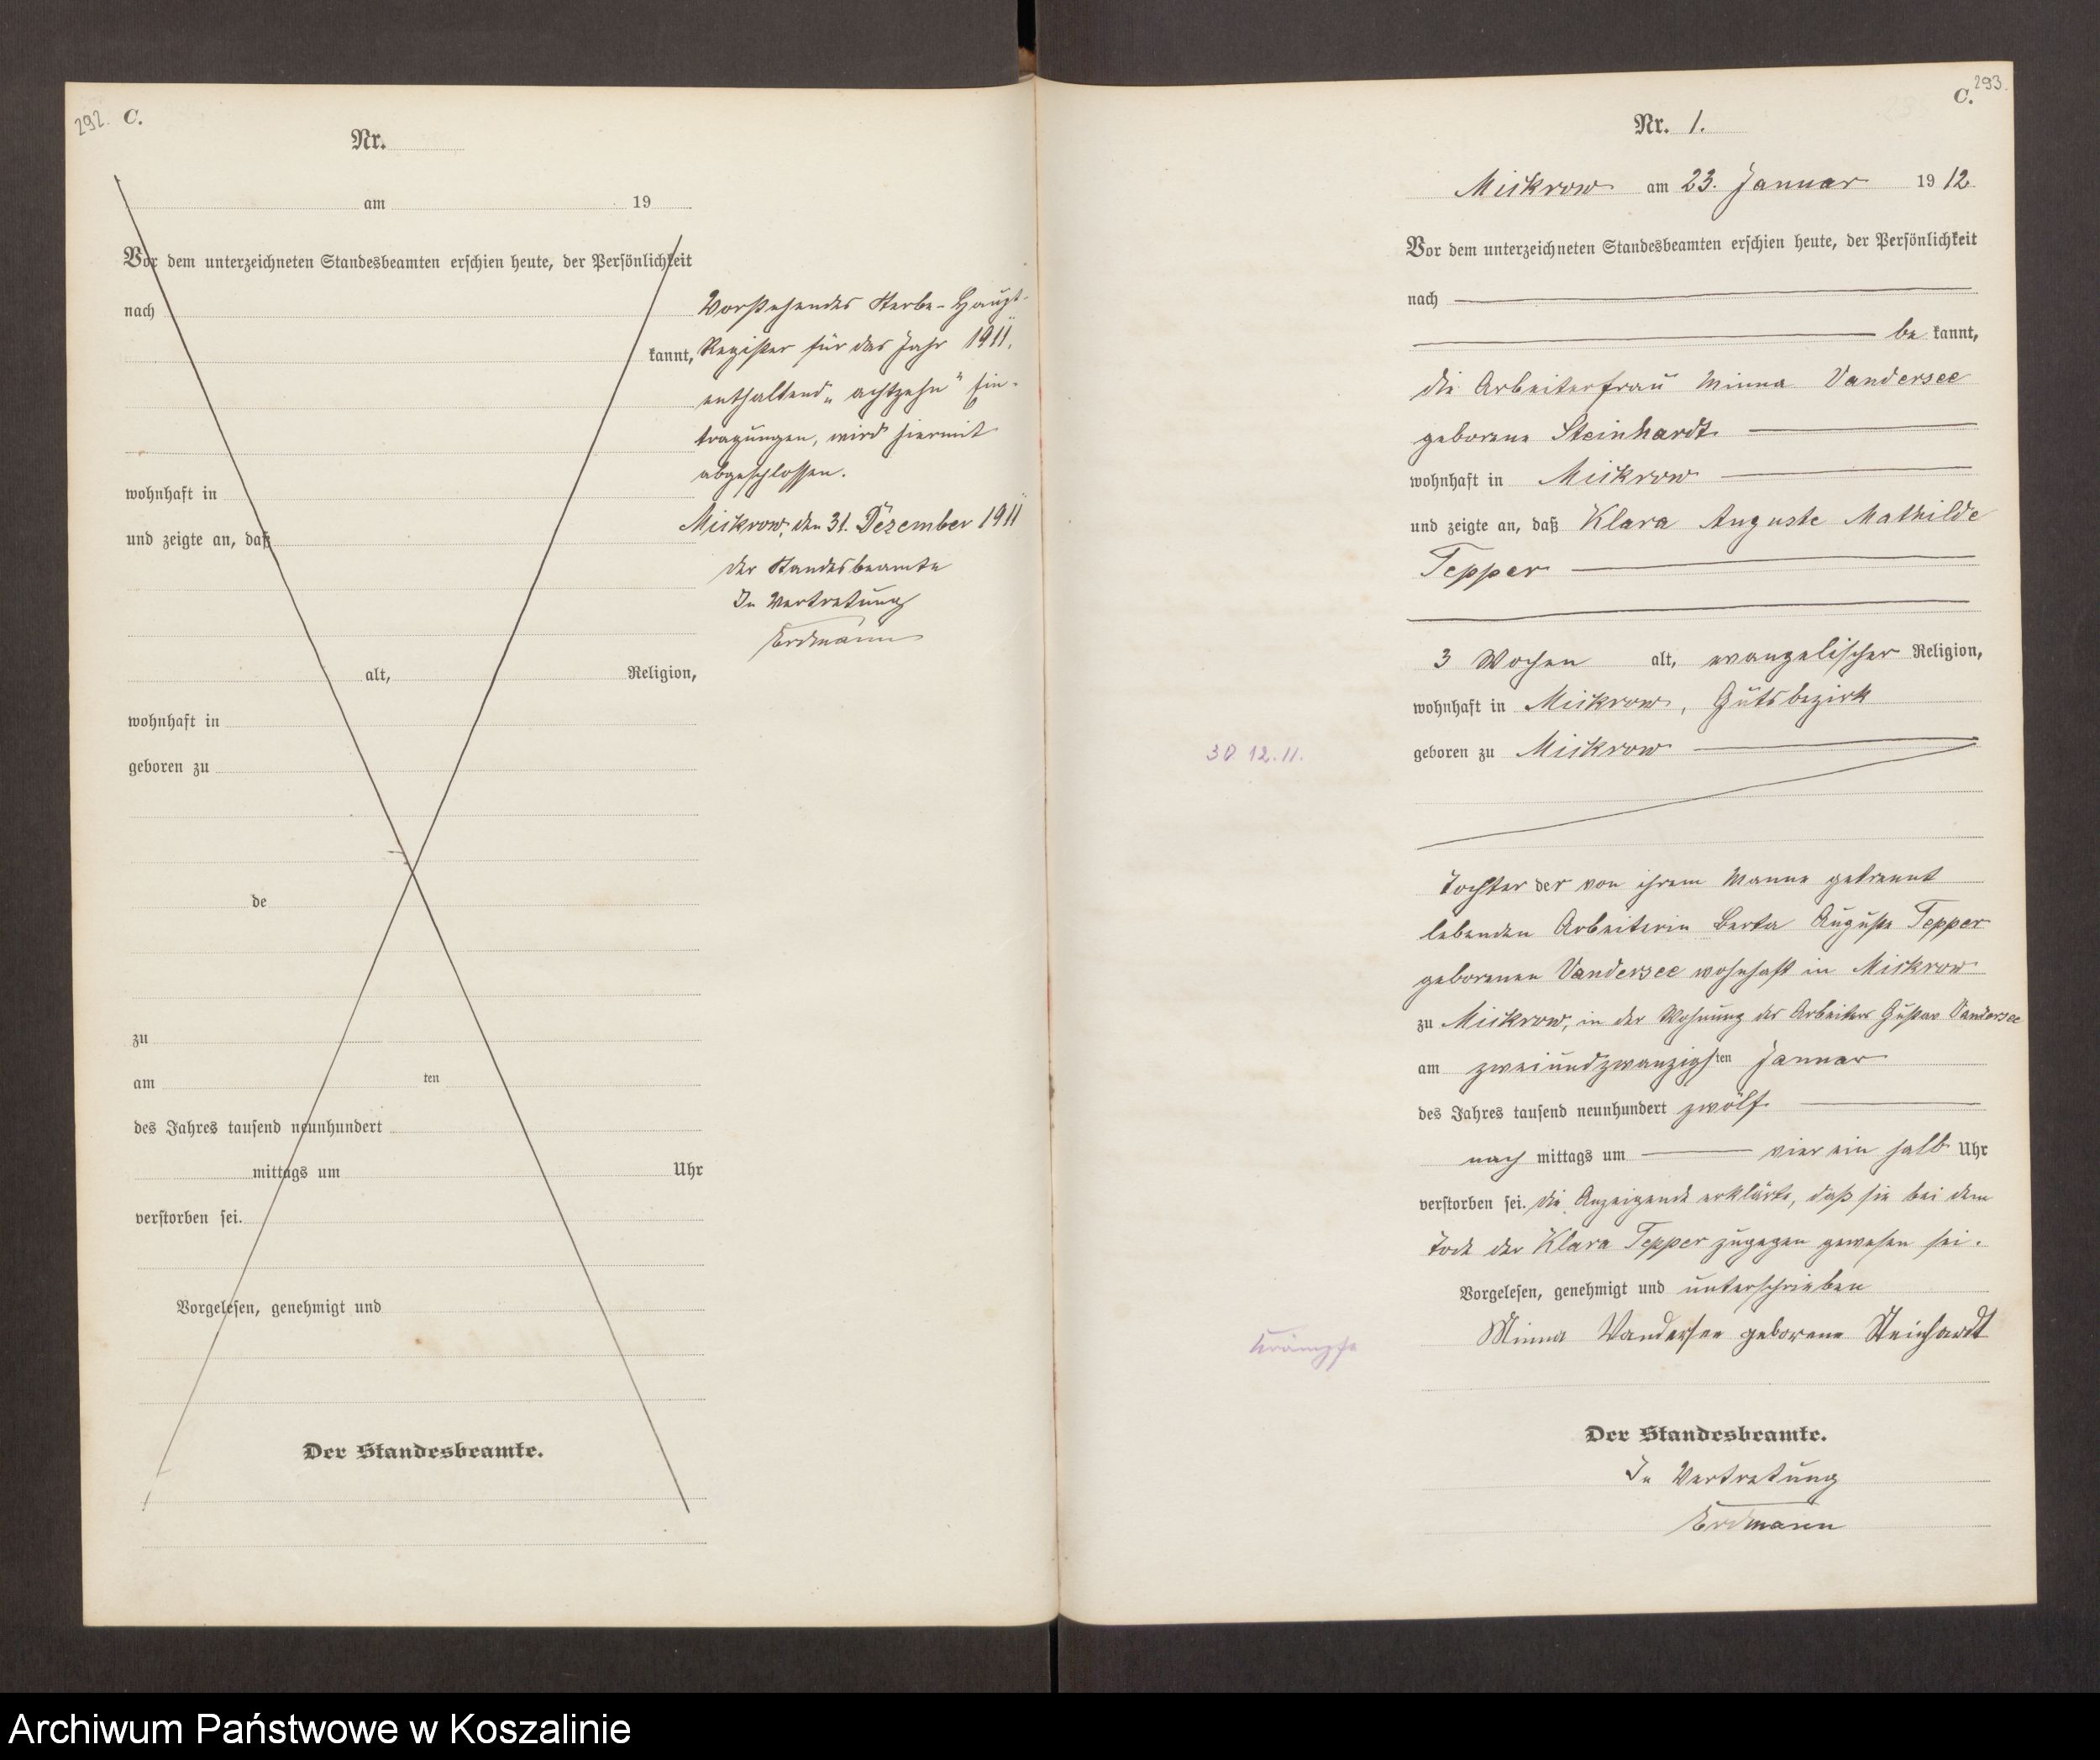 292. C.
Nr.
am 19
Vor dem unterzeichneten Standesbeamten erschien heute, der Persönlichkeit
nach
kannt,
wohnhaft in
und zeigte an, daß
alt, Religion,
wohnhaft in
geboren zu
de
zu
am ten
des Jahres tausend neunhundert
mittags um Uhr
verstorben sei.
Vorgelesen, genehmigt und
Der Standesbeamte.
Vorstehendes Sterbe-Haupt-
Register für das Jahr 1911,
enthaltend „achtzehn" Ein-
tragungen, wird hiermit
abgeschlossen.
Mickrow, den 31. Dezember 1911
Der Standesbeamte
In Vertretung
Erdmann
C. 293.
Nr. 1.
Mickrow am 23. Januar 1912.
Vor dem unterzeichneten Standesbeamten erschien heute, der Persönlichkeit
nach
be kannt,
die Arbeiterfrau Minna Vandersee
geborene Steinhardt
wohnhaft in Mickrow
und zeigte an, daß Klara Auguste Mathilde
Tepper
3 Wochen alt, evangelischer Religion,
wohnhaft in Mickrow, Gutsbezirk
30.12.11.
geboren zu Mickrow
Tochter der von ihrem Manne getrennt
lebenden Arbeiterin Berta Auguste Tepper
geborenen Vandersee wohnhaft in Mickrow
zu Mickrow, in der Wohnung des Arbeiters Gustav Vandersee
am zweiundzwanzigsten Januar
des Jahres tausend neunhundert zwölf
nach mittags um vier ein halb Uhr
verstorben sei. Die Anzeigende erklärte, daß sie bei dem
Tode der Klara Tepper zugegen gewesen sei.
Vorgelesen, genehmigt und unterschrieben
Minna Vandersee geborene Steinhardt
Krämpfe
Der Standesbeamte.
In Vertretung
Erdmann
Archiwum Państwowe w Koszalinie